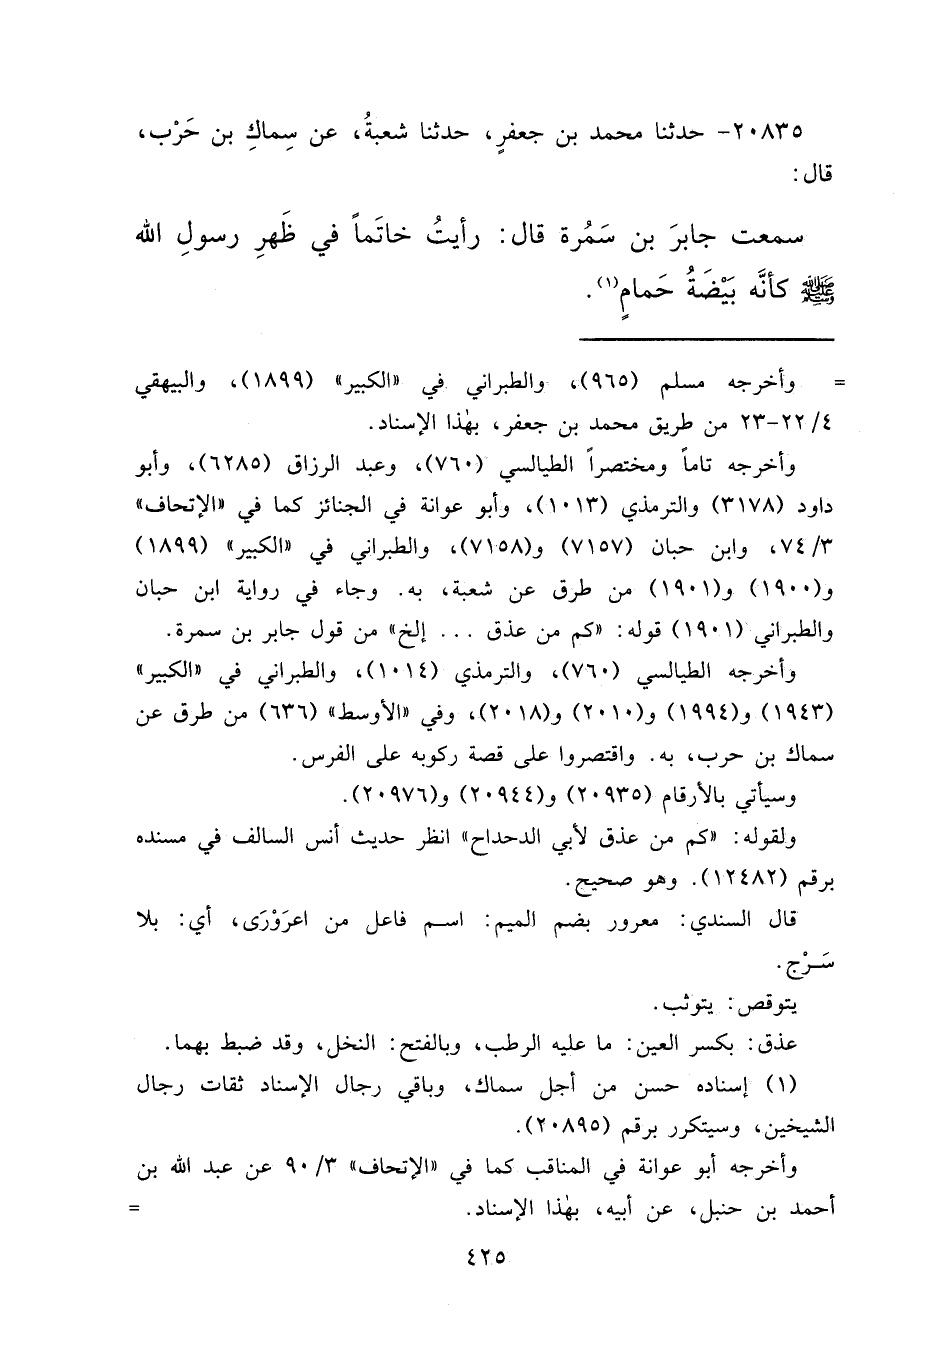 ٢٠٨٣٥- حدثنا محمد بن جعفرٍ، حدثنا شعبةُ، عن سِماكِ بن حَرْب،
قال:
سمعت جابرَ بن سَمُرة قال: رأيتُ خاتَماً في ظَهرِ رسولِ الله
ﷺ كأنَّه بَيْضَةُ حَمامٍ(١).
= وأخرجه مسلم (٩٦٥)، والطبراني في «الكبير» (١٨٩٩)، والبيهقي
٤/ ٢٢-٢٣ من طريق محمد بن جعفر، بهٰذا الإسناد.
وأخرجه تاماً ومختصراً الطيالسي (٧٦٠)، وعبد الرزاق (٦٢٨٥)، وأبو
داود (٣١٧٨) والترمذي (١٠١٣)، وأبو عوانة في الجنائز كما في «الإتحاف»
٣/ ٧٤، وابن حبان (٧١٥٧) و(٧١٥٨)، والطبراني في «الكبير» (١٨٩٩)
و(١٩٠٠) و(١٩٠١) من طرق عن شعبة، به. وجاء في رواية ابن حبان
والطبراني (١٩٠١) قوله: «كم من عذق ... إلخ» من قول جابر بن سمرة.
وأخرجه الطيالسي (٧٦٠)، والترمذي (١٠١٤)، والطبراني في «الكبير»
(١٩٤٣) و(١٩٩٤) و(٢٠١٠) و(٢٠١٨)، وفي «الأوسط» (٦٣٦) من طرق عن
سماك بن حرب، به. واقتصروا على قصة ركوبه على الفرس.
وسيأتي بالأرقام (٢٠٩٣٥) و(٢٠٩٤٤) و(٢٠٩٧٦).
ولقوله: «كم من عذق لأبي الدحداح» انظر حديث أنس السالف في مسنده
برقم (١٢٤٨٢). وهو صحيح.
قال السندي: معرور بضم الميم: اسم فاعل من اعرَوْرَى، أي: بلا
سَرْج.
يتوقص: يتوثب.
عذق: بكسر العين: ما عليه الرطب، وبالفتح: النخل، وقد ضبط بهما.
(١) إسناده حسن من أجل سماك، وباقي رجال الإسناد ثقات رجال
الشيخين، وسيتكرر برقم (٢٠٨٩٥).
وأخرجه أبو عوانة في المناقب كما في «الإتحاف» ٣/ ٩٠ عن عبد الله بن
أحمد بن حنبل، عن أبيه، بهٰذا الإسناد. =
٤٢٥